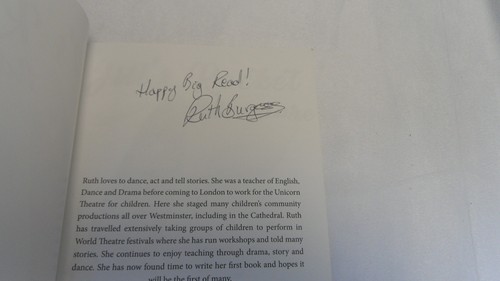 Happy Big Read!
Ruth Burgess
Ruth loves to dance, act and tell stories. She was a teacher of English,
Dance and Drama before coming to London to work for the Unicorn
Theatre for children. Here she staged many children's community
productions all over Westminster, including in the Cathedral. Ruth
has travelled extensively taking groups of children to perform in
World Theatre festivals where she has run workshops and told many
stories. She continues to enjoy teaching through drama, story and
dance. She has now found time to write her first book and hopes it
will be the first of many.